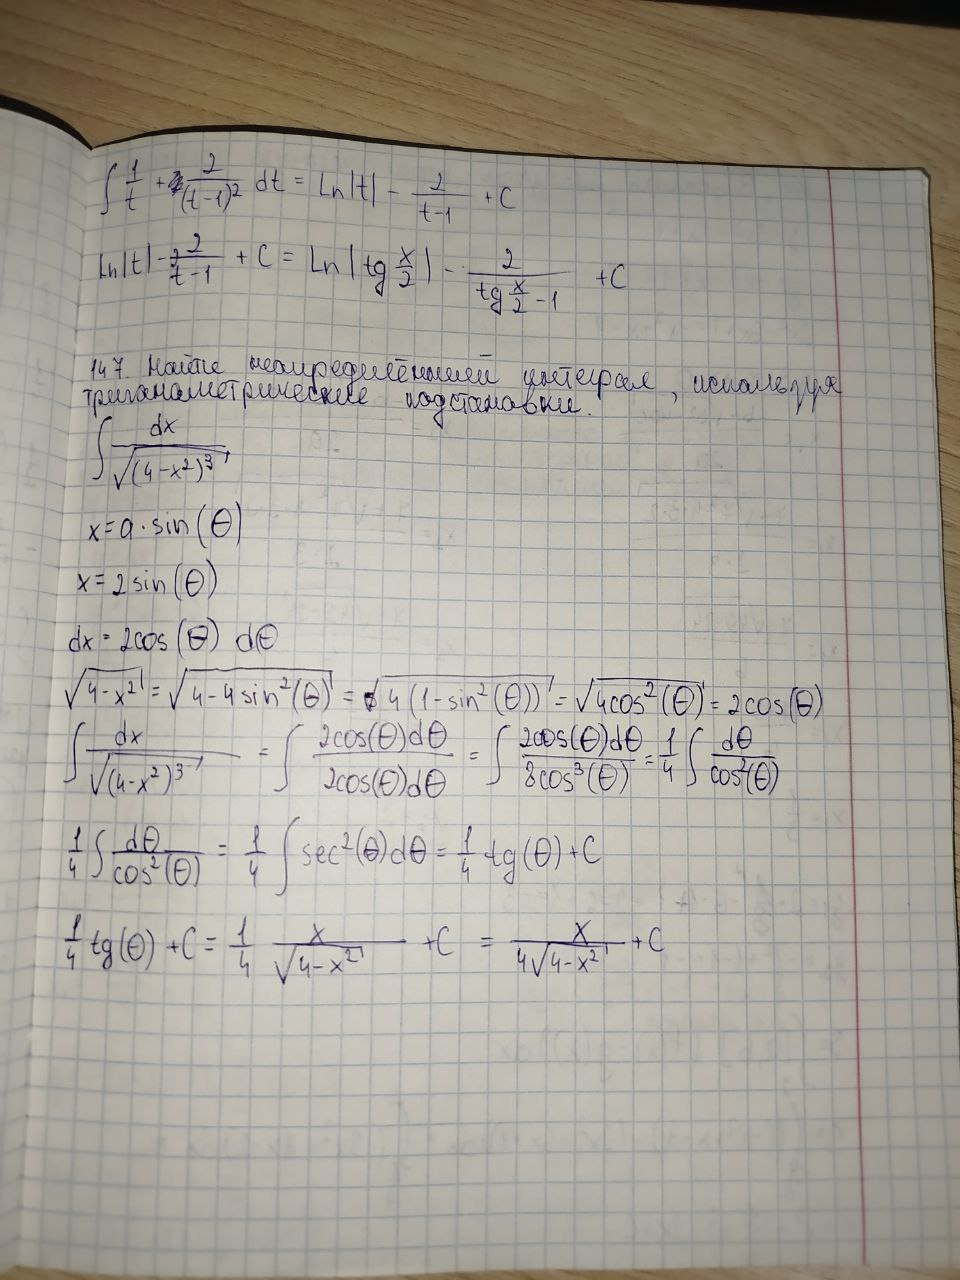 ∫ 1/t + 2/(t-1)² dt = Ln|t| - 2/(t-1) + C
Ln|t| - 2/(t-1) + C = Ln|tg x/2| - 2/(tg x/2 - 1) + C
147. Найти неопределённый интеграл, используя
тригонометрические подстановки.
∫ dx/√((4-x²)³)
x = a·sin(θ)
x = 2sin(θ)
dx = 2cos(θ) dθ
√(4-x²) = √(4-4sin²(θ)) = √(4(1-sin²(θ))) = √(4cos²(θ)) = 2cos(θ)
∫ dx/√((4-x²)³) = ∫ 2cos(θ)dθ/2cos(θ)dθ = ∫ 2cos(θ)dθ/8cos³(θ) = 1/4 ∫ dθ/cos²(θ)
1/4 ∫ dθ/cos²(θ) = 1/4 ∫ sec²(θ)dθ = 1/4 tg(θ) + C
1/4 tg(θ) + C = 1/4 x/√(4-x²) + C = x/(4√(4-x²)) + C